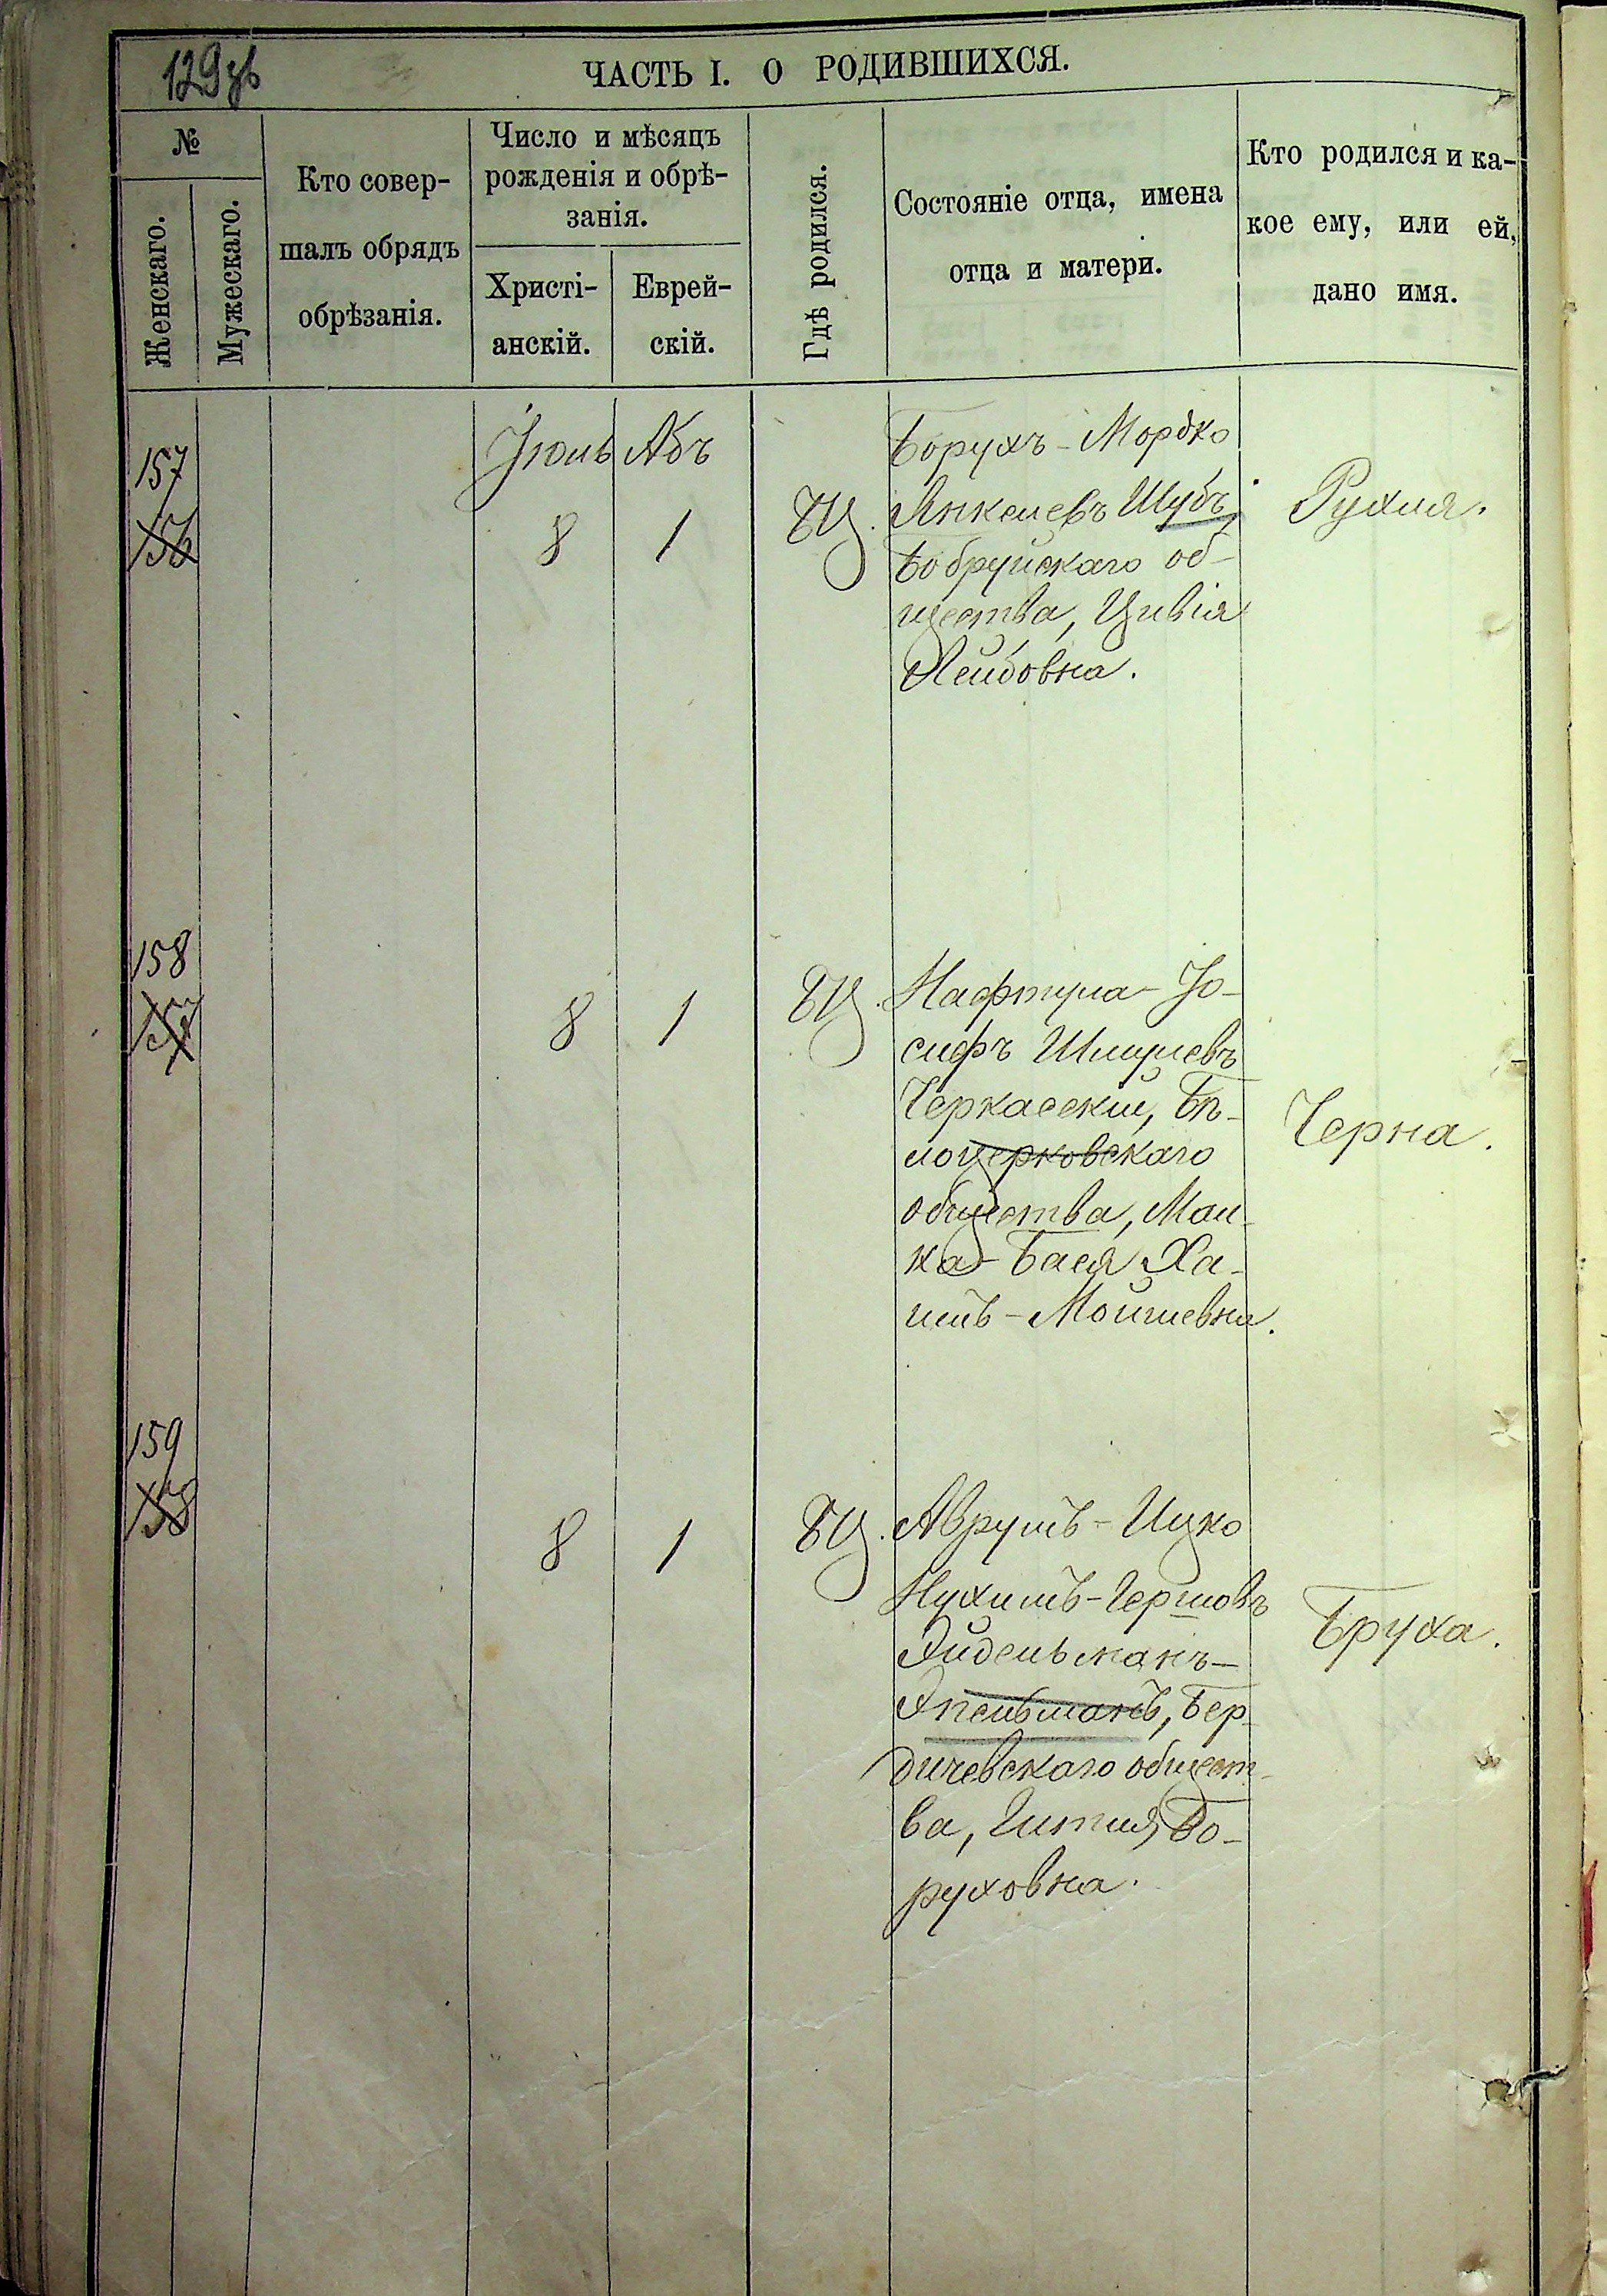 129зв
ЧАСТЬ I. О РОДИВШИХСЯ.
№
Женскаго.
Мужескаго.
Кто совер-
шалъ обрядъ
обрѣзанія.
Число и мѣсяцъ
рожденія и обрѣ-
занія.
Христі-
анскій.
Еврей-
скій.
Гдѣ родился.
Состояніе отца, имена
отца и матери.
Кто родился и ка-
кое ему, или ей,
дано имя.
157
156
Іюль Абъ
8 1
БЦ.
Борухъ-Мордко
Янкелевъ Шубъ,
Бобруйскаго об-
щества, Цивія
Лейбовна.
Рухля.
158
157
8 1
БЦ.
Нафтула-Іо-
сифъ Шмулевъ
Черкасскій, Бѣ-
лоцерковскаго
общества, Мал-
ка-Бася Ха-
имъ-Мошиевна.
Черна.
159
158
8 1
БЦ.
Аврумъ-Ицко
Нухимъ-Гершовъ
Эйдельманъ-
Эпельманъ, Бер-
дичевскаго общест-
ва, Гитля Бо-
руховна.
Бруха.